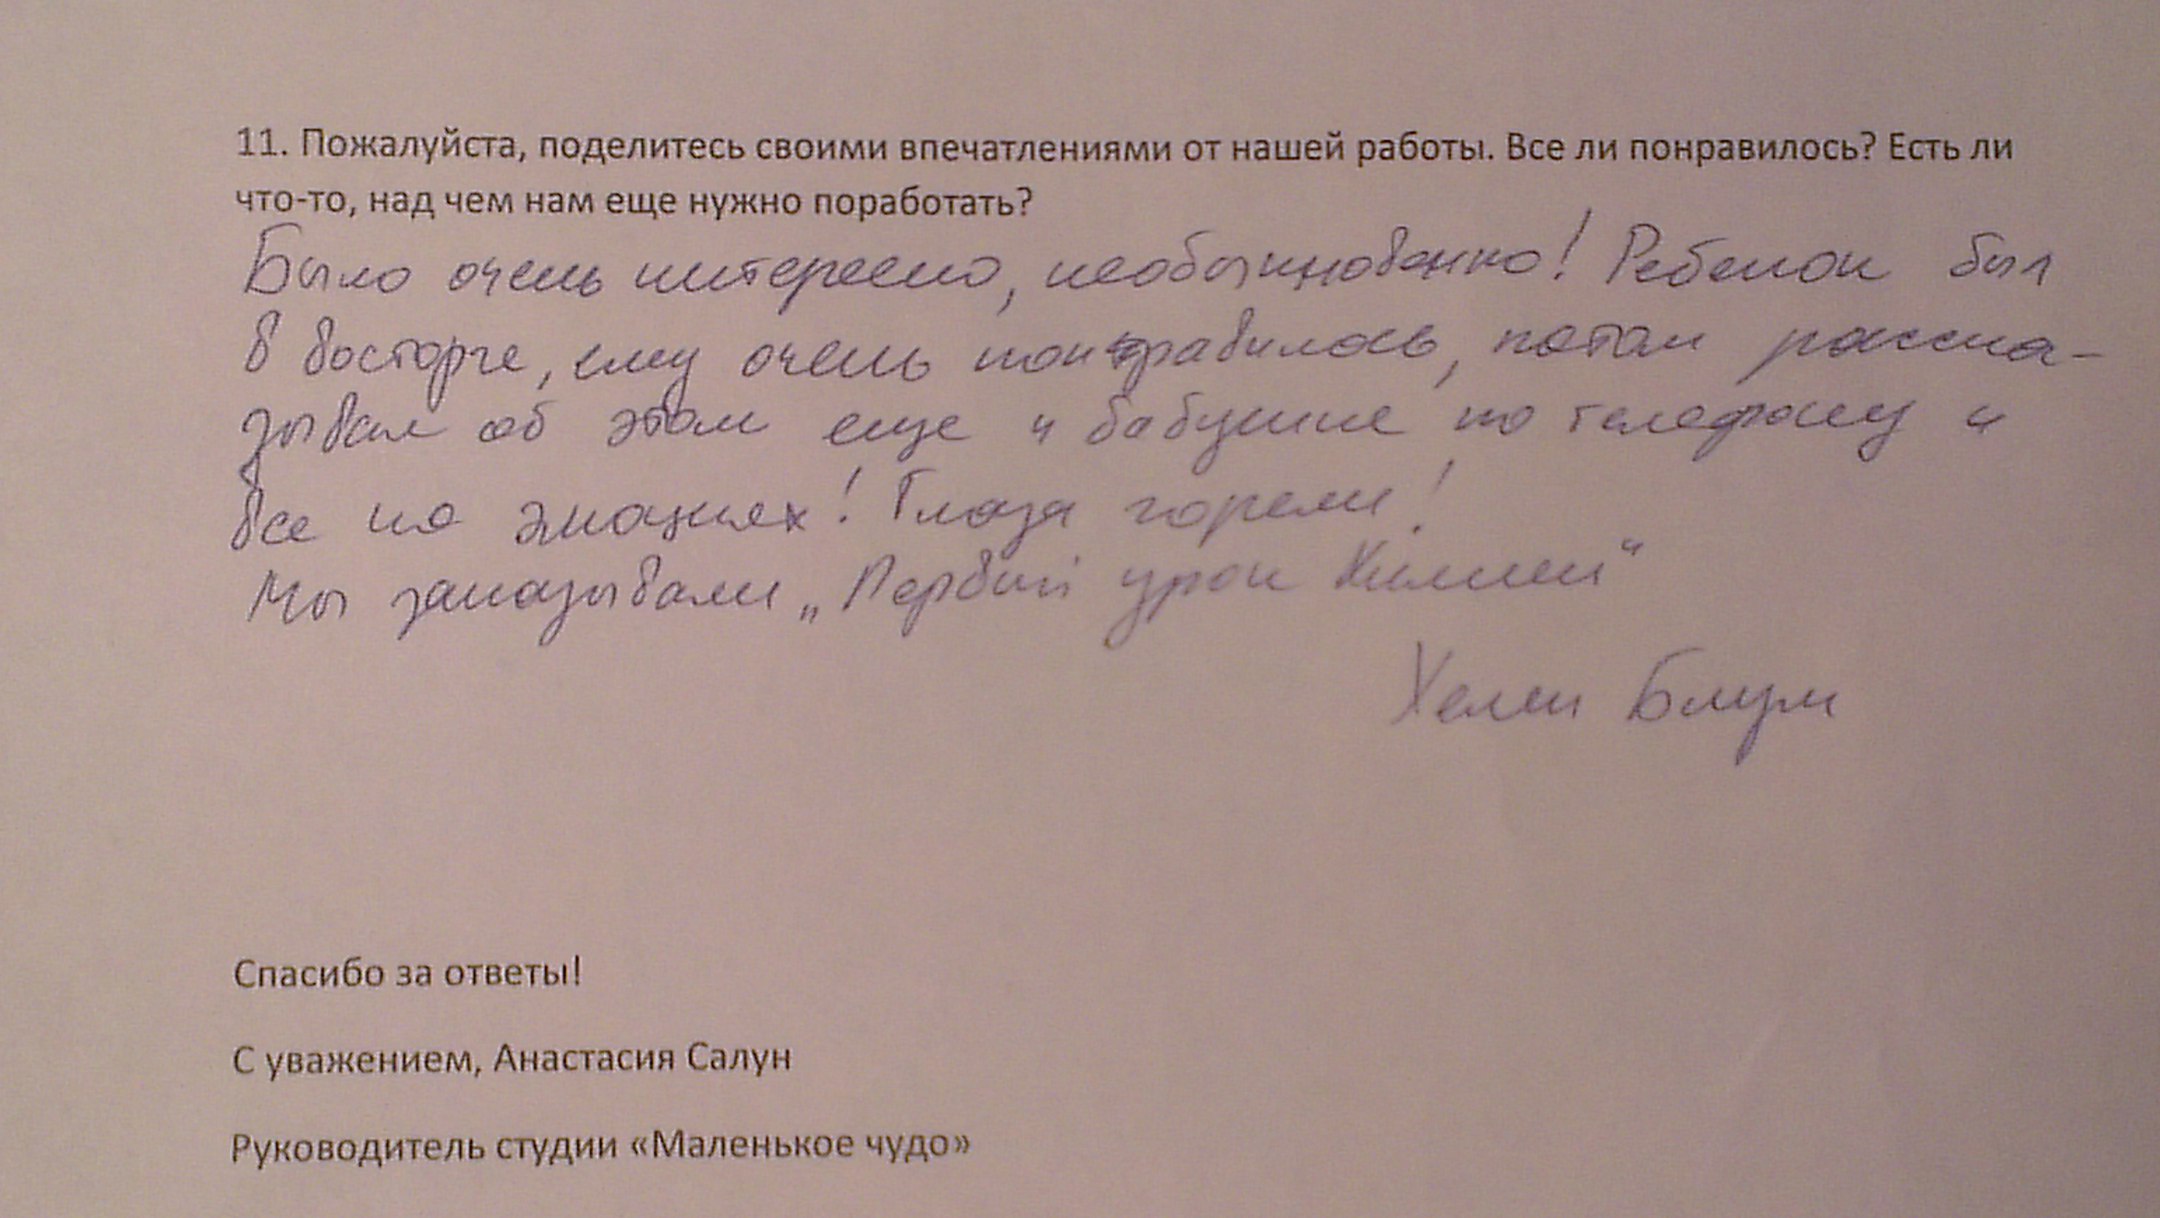 11. Пожалуйста, поделитесь своими впечатлениями от нашей работы. Все ли понравилось? Есть ли
что-то, над чем нам еще нужно поработать?
Было очень интересно, необыкновенно! Ребенок был
в восторге, ему очень понравилось, потом расска-
зывал об этом еще и бабушке по телефону и
все на эмоциях! Глаза горели!
Мы заказывали „Первый урок Химии“
Хелен Блум
Спасибо за ответы!
С уважением, Анастасия Салун
Руководитель студии «Маленькое чудо»